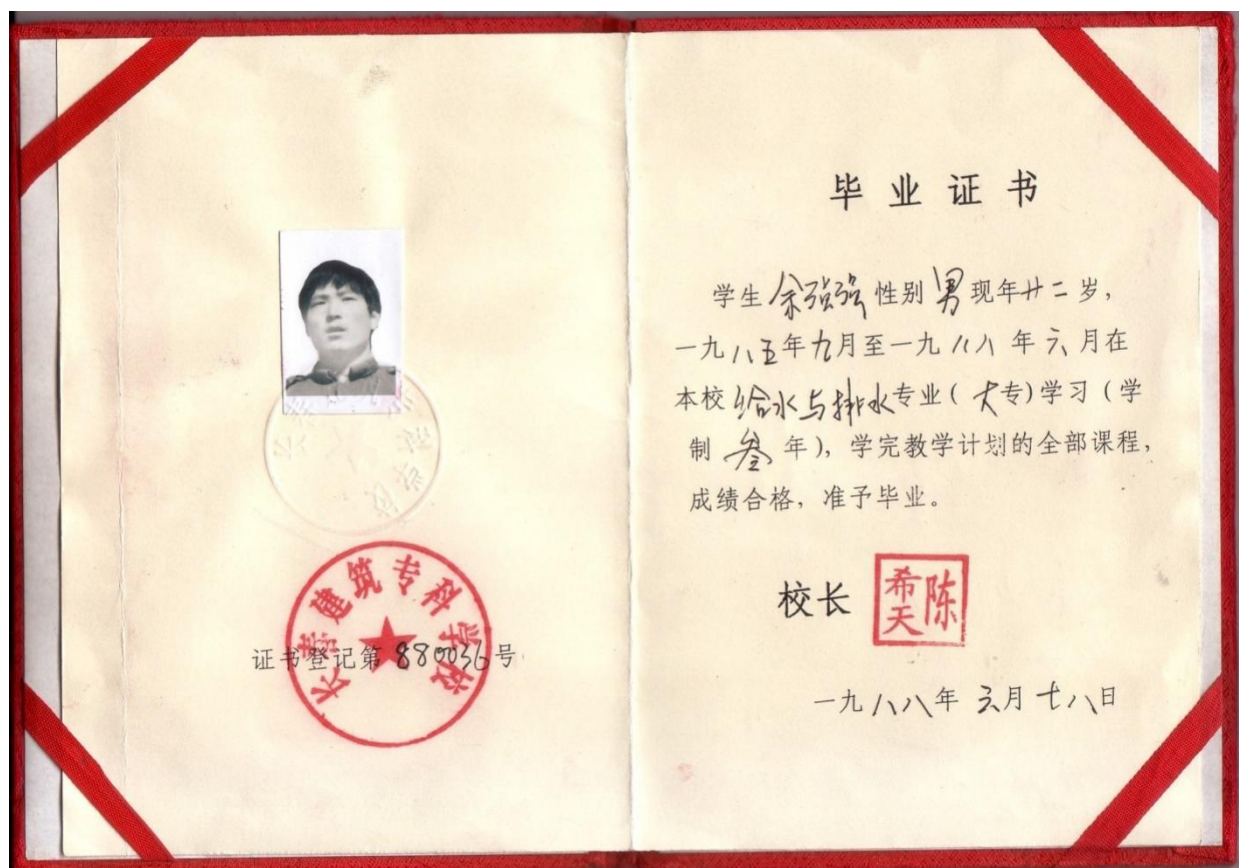 证书登记第 880036 号
长春建筑专科学校
毕业证书
学生余强强性别男现年廿二岁，
一九八五年九月至一九八八年六月在
本校给水与排水专业（大专）学习（学
制叁年），学完教学计划的全部课程，
成绩合格，准予毕业。
校长
陈希天
一九八八年六月十八日